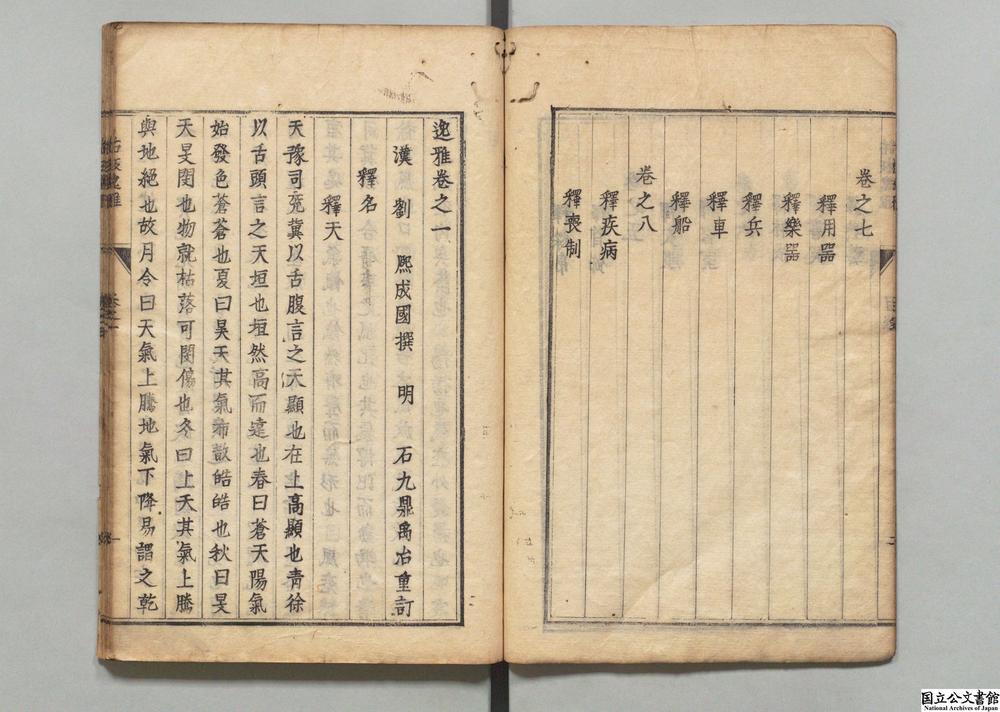 卷之七
釋用噐
釋樂噐
釋兵
釋車
釋船
卷之八
釋疾病
釋喪制
逸雅卷之一
漢 劉熙成國撰 明 石九鼎禹冶重訂
釋名
釋天
天豫司兖冀以舌腹言之天顯也在上高顯也青徐
以舌頭言之天坦也坦然高而遠也春曰蒼天陽氣
始發色蒼蒼也夏曰昊天其氣布散皓皓也秋曰旻
天旻閔也物就枯落可閔傷也冬曰上天其氣上騰
與地絕也故月令曰天氣上騰地氣下降易謂之乾
国立公文書館
National Archives of Japan